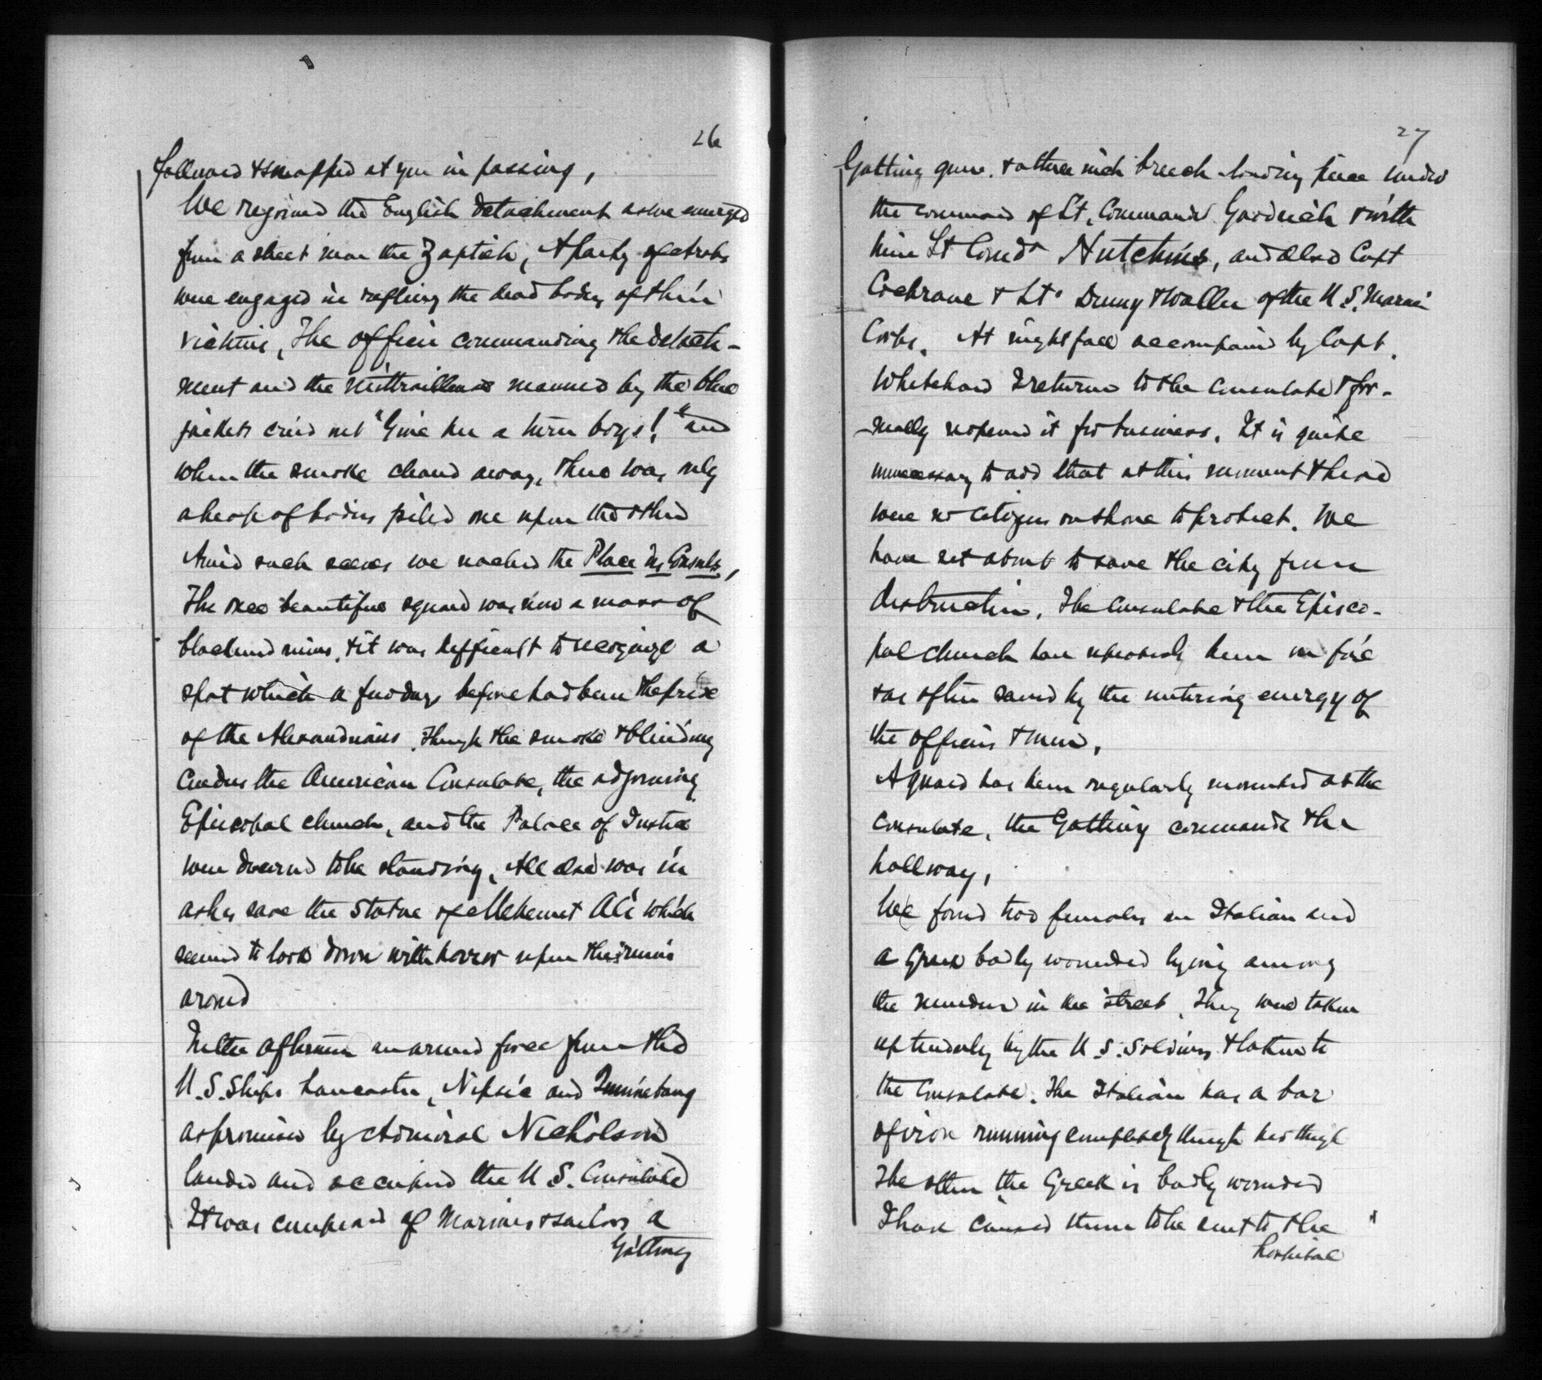 26
followed & snapped at you in passing,
We rejoined the English detachment as we emerged
from a street near the Zaptieh, A party of Arabs
were engaged in rifling the dead bodies of their
victims, The officer commanding the detach-
ment and the mittrailleuse manned by the blue
jackets cried out "Give her a turn boys!" and
when the smoke cleared away, there was only
a heap of bodies piled one upon the other
Amid such scenes we reached the Place des Consuls,
The once beautiful square was now a mass of
blackened ruins, & it was difficult to recognize a
spot which a few days before had been the pride
of the Alexandrians. Through the smoke & blinding
cinders the American Consulate, the adjoining
Episcopal church, and the Palace of Justice
were discerned to be standing, All else was in
ashes save the statue of Mehemet Ali which
seemed to look down with horror upon the ruins
around
In the afternoon an armed force from the
U.S. Ships Lancaster, Nipsic and Quinnebaug
as promised by Admiral Nicholson
landed and occupied the U S. Consulate
It was composed of Marines & sailors a
Gatling
27
Gatling gun. & a three inch breech loading piece under
the command of Lt. Commander Goodrich & with
him Lt Comdr Hutchins, and also Capt
Cochrane & Lts Denny & Waller of the U.S. Marine
Corps. At nightfall accompanied by Capt.
Whitehead I returned to the Consulate & for-
mally reopened it for business. It is quite
unnecessary to add that at this moment there
were no citizens on shore to protect. We
have set about to save the city from
destruction. The Consulate & the Episco-
pal church have repeatedly been on fire
& as often saved by the untiring energy of
the officers & men,
A guard has been regularly mounted at the
Consulate, the Gatling commands the
hallway,
We found two females an Italian and
a Greek badly wounded lying among
the in the street. They were taken
up tenderly by the U.S. Soldiers & taken to
the Consulate. The Italian has a bar
of iron running completely through her thigh
The other the Greek is badly wounded
I have caused them to be sent to the
hospital